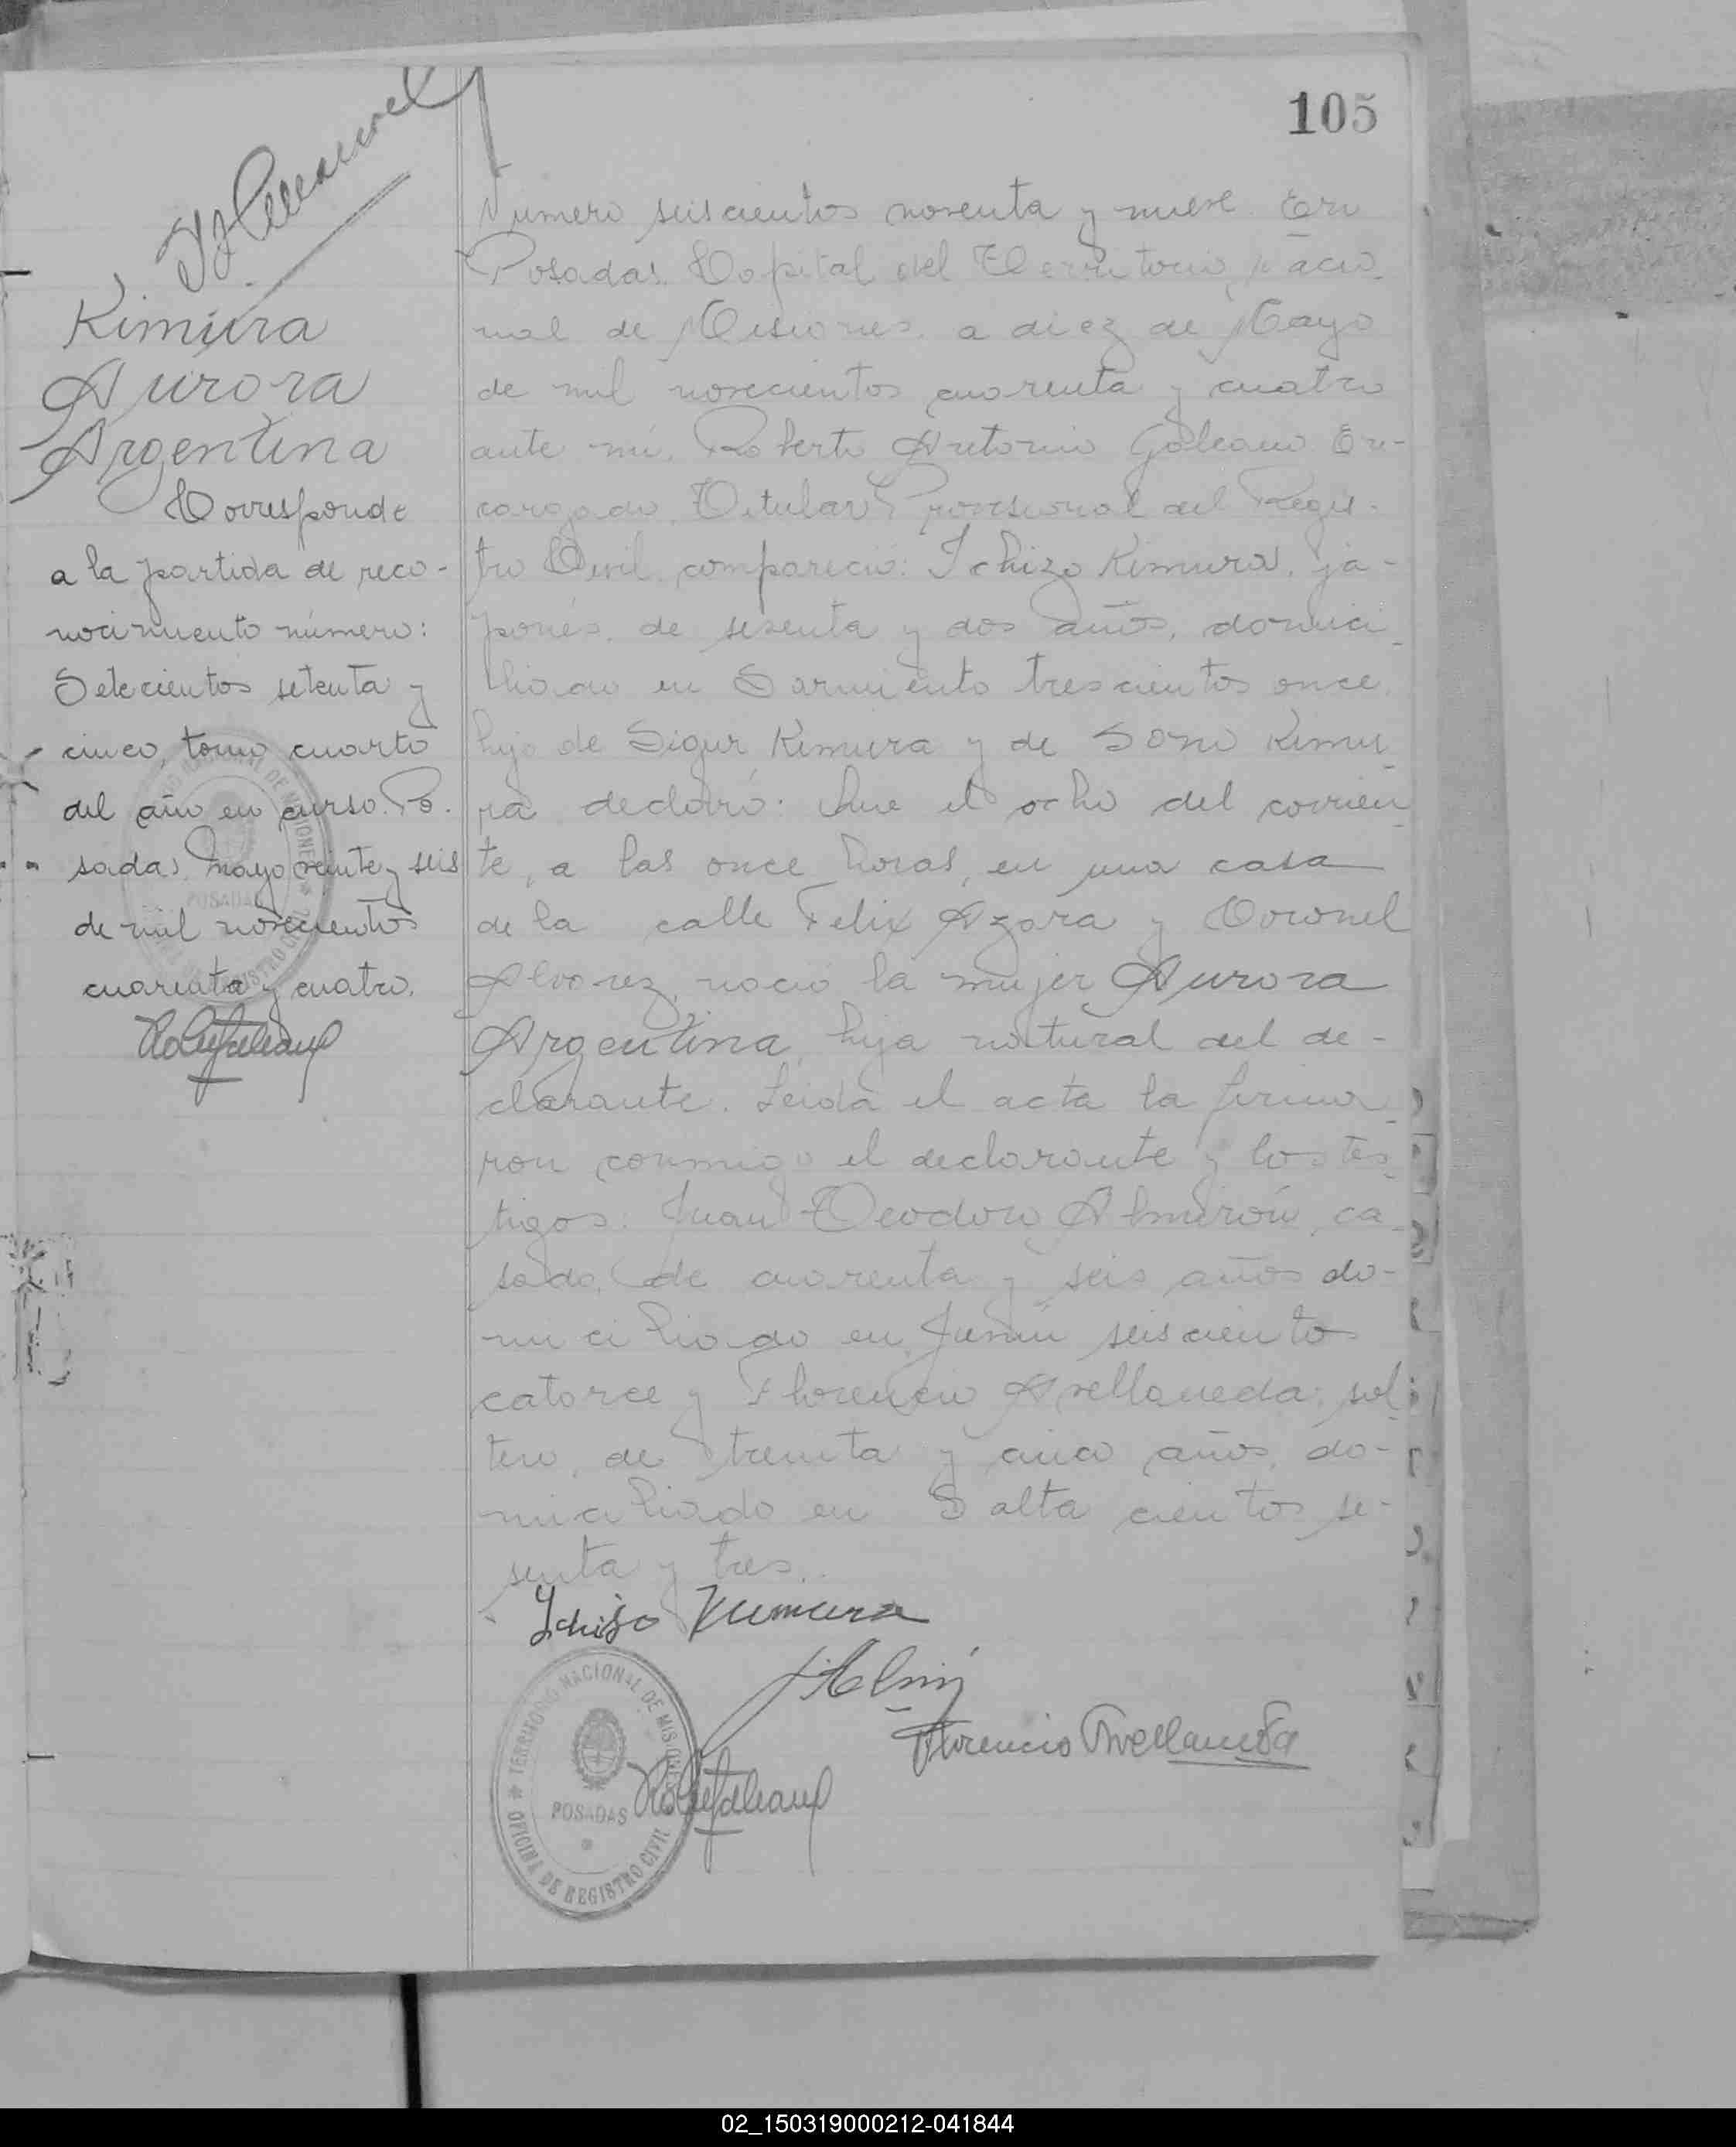 105
Kimura
Aurora
Argentina
Corresponde
a la partida de reco-
nocimiento número:
Setecientos setenta y
cinco, tomo cuarto
del año en curso. Po-
sadas, mayo veinte y seis
de mil novecientos
cuarenta y cuatro.
Numero seiscientos noventa y nueve. En
Posadas, Capital del Territorio Nacio-
nal de Misiones, a diez de Mayo
de mil novecientos cuarenta y cuatro
ante mí, Roberto Antonio Galeano En-
cargado Titular Provisional del Regis-
tro Civil, compareció: Ichizo Kimura, ja-
ponés, de sesenta y dos años, domici-
liado en Sarmiento trescientos once,
hijo de Sigur Kimura y de Sono Kimu-
ra, declaró: Que el ocho del corrien-
te, a las once horas, en una casa
de la calle Felix Azara y Coronel
Alvarez, nació la mujer Aurora
Argentina, hija natural del de-
clarante. Leida el acta la firma-
ron conmigo el declarante y los tes-
tigos: Juan Teodoro Almirón, ca-
sado, de cuarenta y seis años do-
miciliado en Junín seiscientos
catorce y Florencio Avellaneda, sol-
tero, de treinta y cinco años, do-
miciliado en Salta cientos se-
senta y tres.
Ichiso Kimura
Florencio Avellaneda
TERRITORIO NACIONAL DE MISIONES
POSADAS
OFICINA DE REGISTRO CIVIL
02_150319000212-041844